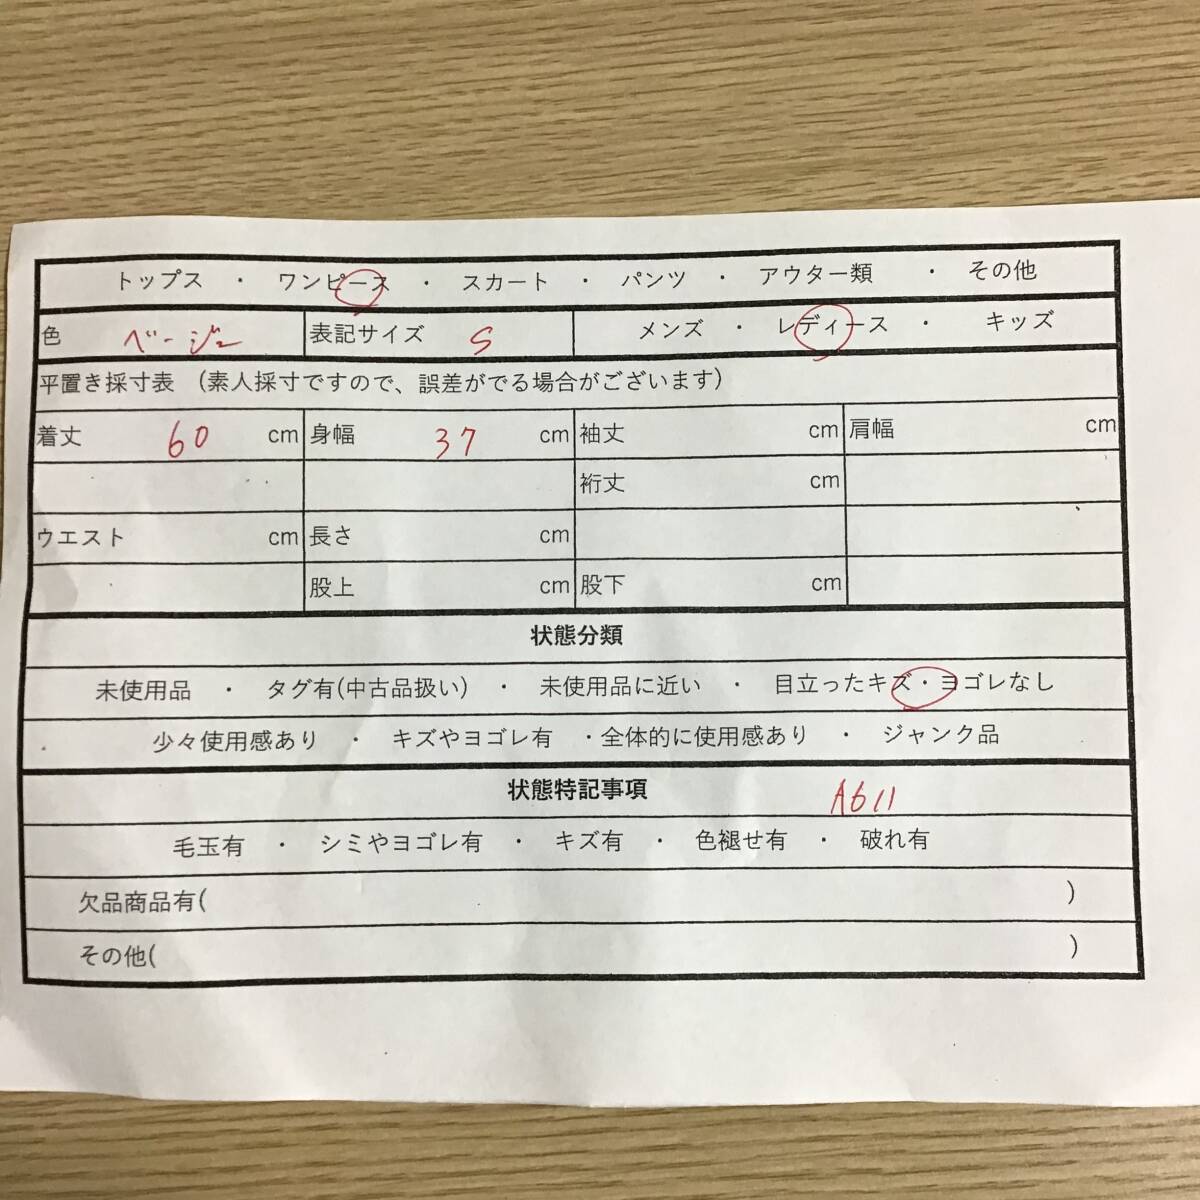 トップス ・ ワンピース ・ スカート ・ パンツ ・ アウター類 ・ その他
色 ベージュ 表記サイズ S メンズ ・ レディース ・ キッズ
平置き採寸表 (素人採寸ですので、誤差がでる場合がございます)
着丈 60 cm 身幅 37 cm 袖丈 cm 肩幅 cm
裄丈 cm
ウエスト cm 長さ cm
股上 cm 股下 cm
状態分類
未使用品 ・ タグ有(中古品扱い) ・ 未使用品に近い ・ 目立ったキズ・ヨゴレなし
少々使用感あり ・ キズやヨゴレ有 ・全体的に使用感あり ・ ジャンク品
状態特記事項 A611
毛玉有 ・ シミやヨゴレ有 ・ キズ有 ・ 色褪せ有 ・ 破れ有
欠品商品有( )
その他( )